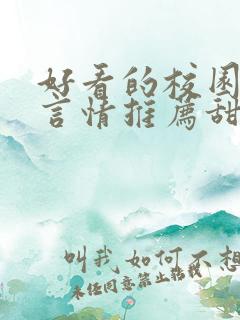 好看的校园
言情推荐甜
叫我如何不想
未经同意禁止转载